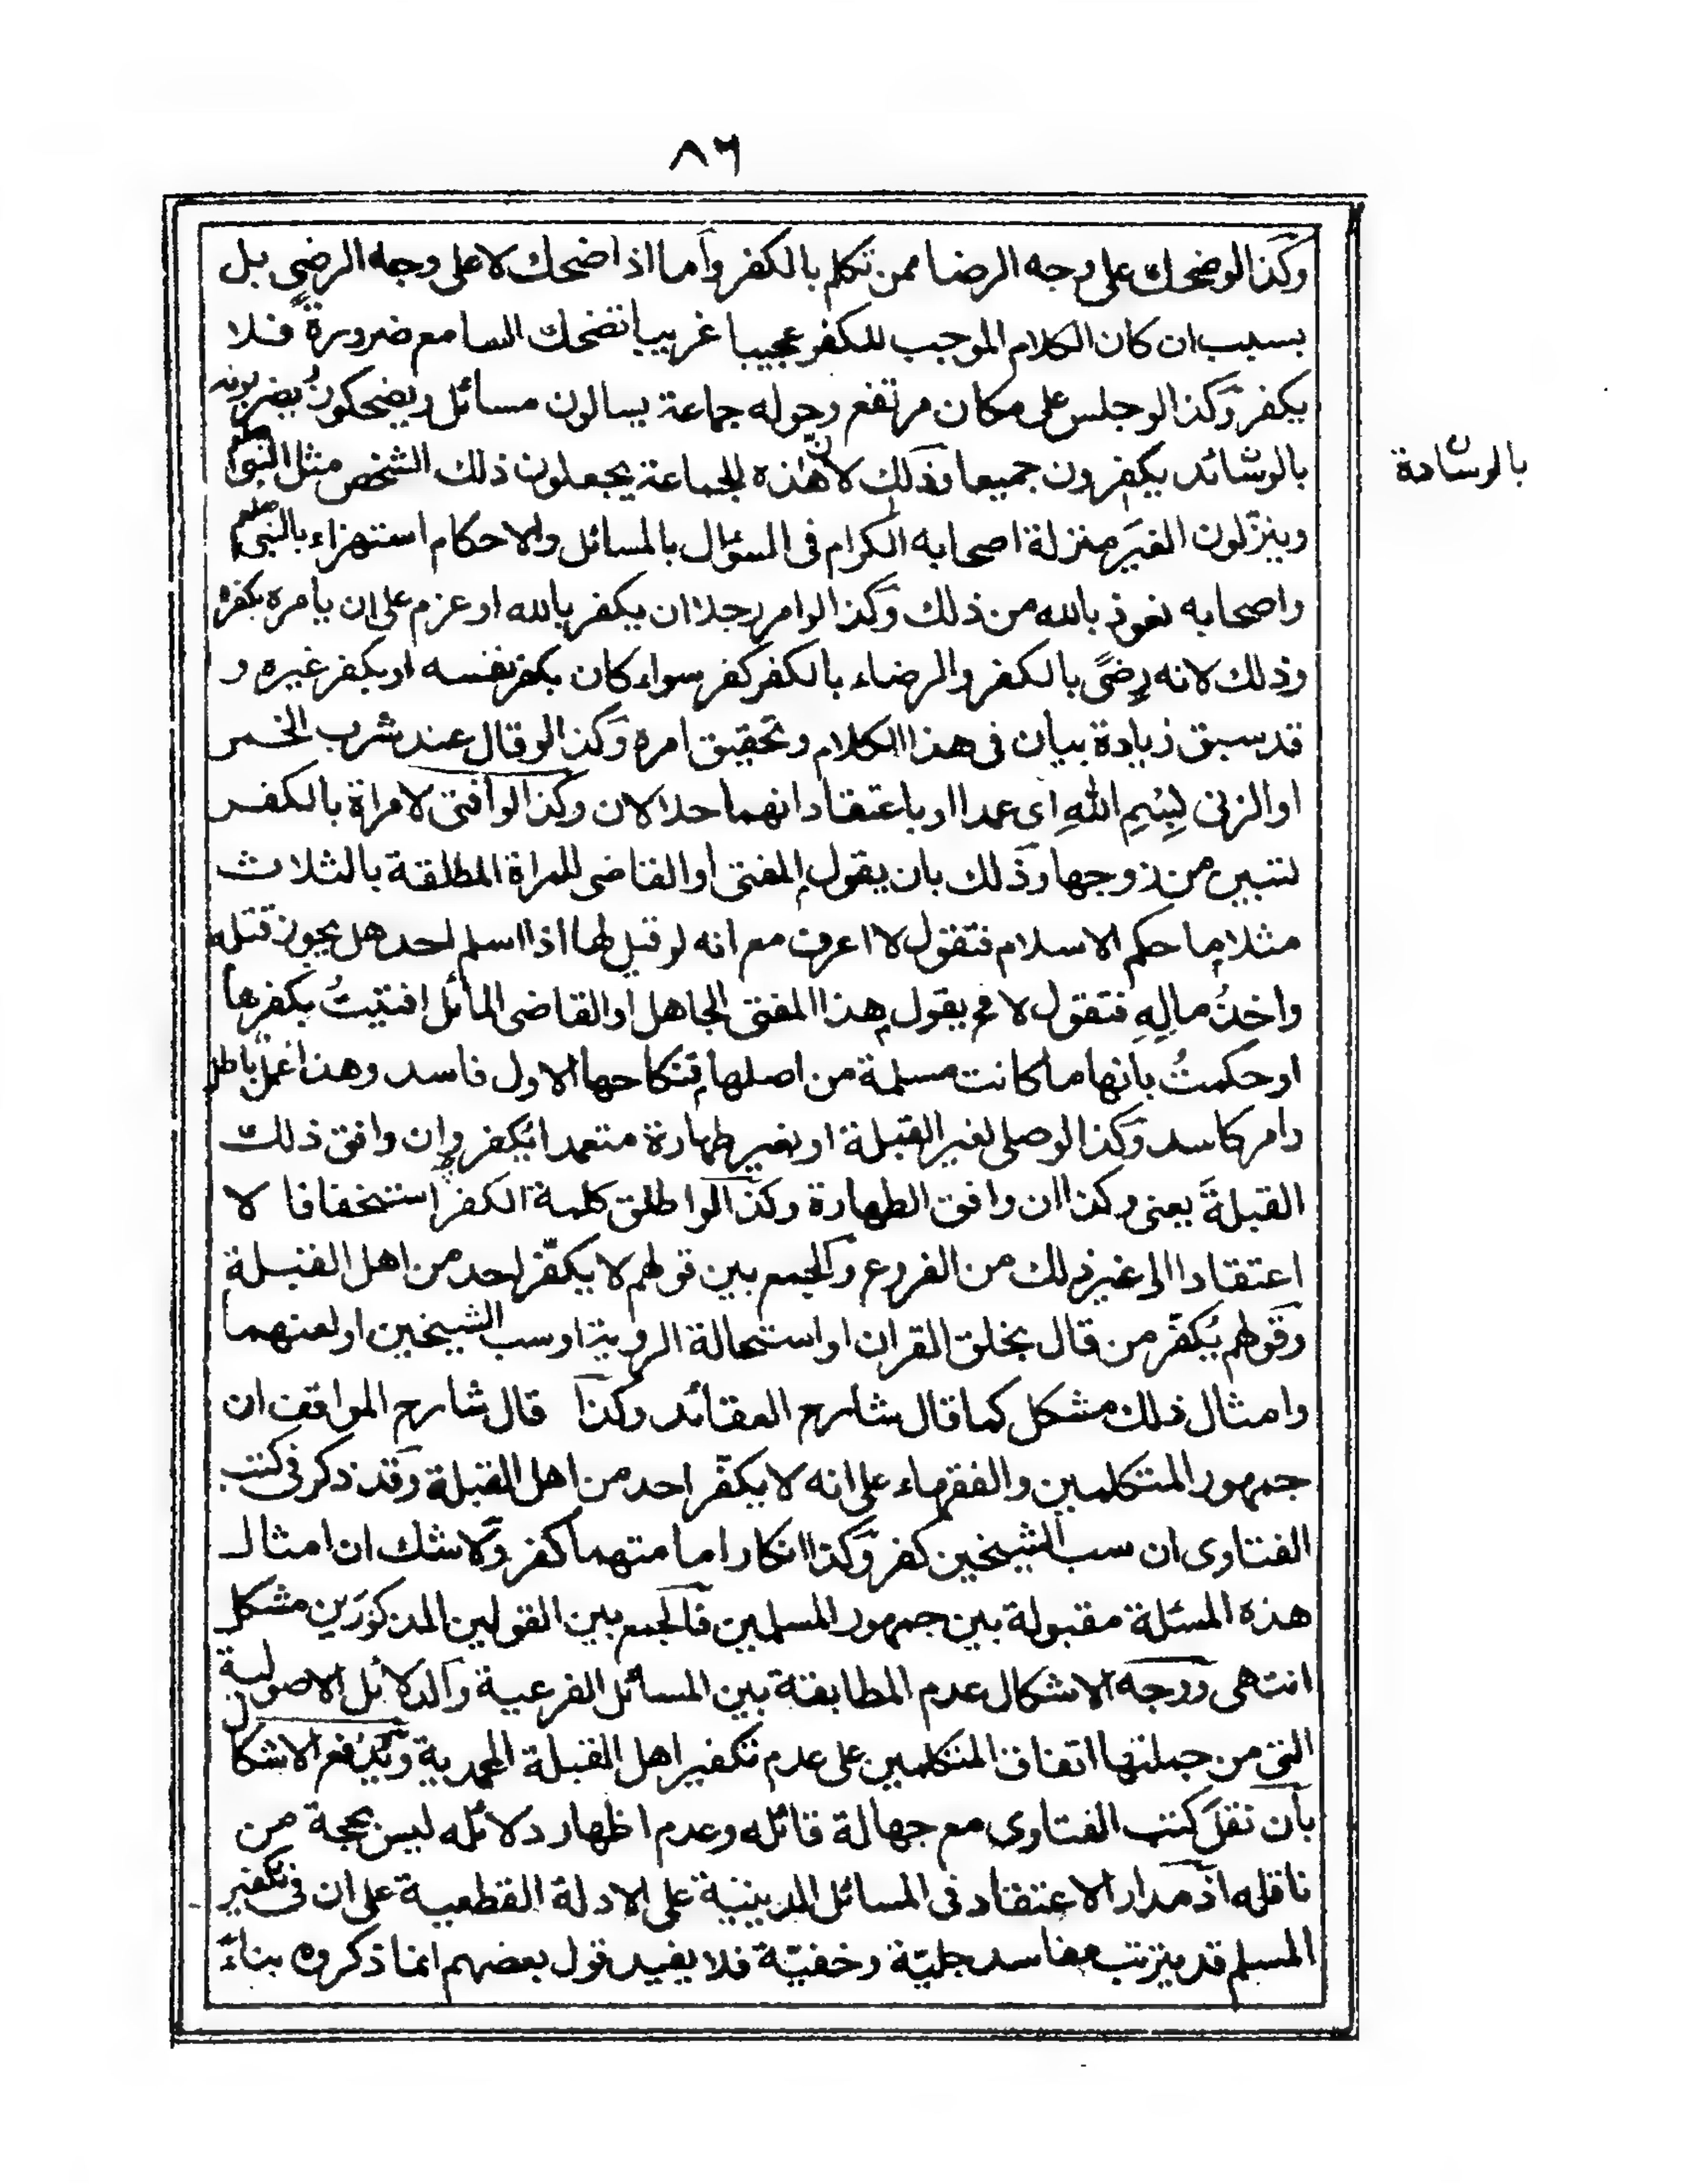 ٨٦
وكذا لو ضحك على وجه الرضا ممن تكلم بالكفر وأما اذا ضحك لا على وجه الرضى بل
بسبب ان كان الكلام الموجب للكفر عجيبا غريبا تضحك السامع ضرورة فلا
يكفر وكذا لو جلس على مكان مرتفع وحوله جماعة يسالون مسائل ويضحكون ويضربونه
بالوشائد يكفرون جميعا وذلك لانّ هذه الجماعة يجعلون ذلك الشخص مثل النبى
بالوشادة
وينزّلون الغيرَ منزلة اصحابه الكرام فى السؤال بالمسائل والاحكام استهزاء بالنبى صلعم
واصحابه نعوذ بالله من ذلك وكذا لو امر رجلا ان يكفر بالله او عزم على ان يامره بكفره
وذلك لانه رضىً بالكفر والرضاء بالكفر كفر سواء كان بكفر نفسه او بكفر غيره و
قد سبق زيادة بيان فى هذا الكلام وتحقيق امره وكذا لو قال عند شرب الخمر
او الزنى بِسْمِ اللهِ اى عمدا او باعتقاد انهما حلالان وكذا لو افتى لامراة بالكفر
لتبين من زوجها وذلك بان يقول المفتى او القاضى للمراة المطلقة بالثلاث
مثلا ما حكم الاسلام فتقول لا اعرف مع انه لو قيل لها اذا اسلم احد هل يجوز قتله
واخذُ مالِهِ فتقول لا ثم يقول هذا المفتى الجاهل او القاضى المائل افتيتُ بكفرها
او حكمتُ بانها ما كانت مسلمة من اصلها فنكاحها الاول فاسد وهذا عملٌ باطل
وامر كاسد وكذا لو صلى لغير القبلة او بغير طهارة متعمدا يُكفر وان وافق ذلك
القبلةَ يعنى وكذا ان وافق الطهارة وكذا لو اطلق كلمة الكفر استخفافا لا
اعتقادا الى غير ذلك من الفروع والجمع بين قولهم لا يكفّر احد من اهل القبلة
وقولهم يُكفّر من قال بخلق القران او استحالة الروية او سب الشيخين او لعنهما
وامثال ذلك مشكل كما قال شارح العقائد وكذا قال شارح المواقف ان
جمهور المتكلمين والفقهاء على انه لا يكفّر احد من اهل القبلة وقد ذكر فى كتب
الفتاوى ان سب الشيخين كفر وكذا انكار امامتهما كفر ولا شك ان امثال
هذه المسئلة مقبولة بين جمهور المسلمين فالجمع بين القولين المذكورَين مشكل
انتهى ووجه الاشكال عدم المطابقة بين المسائل الفرعية والدلائل الاصولية
التى من جملتها اتفاق المتكلمين على عدم تكفير اهل القبلة المحمدية ويُدفع الاشكال
بأن نقلَ كتب الفتاوى مع جهالة قائله وعدم اظهار دلائله ليس بحجة من
ناقله اذ مدار الاعتقاد فى المسائل الدينية على الادلة القطعية على ان فى تكفير
المسلم قد يترتب مفاسد جليّة وخفيّة فلا يفيد قول بعضهم انما ذكروه بناءً